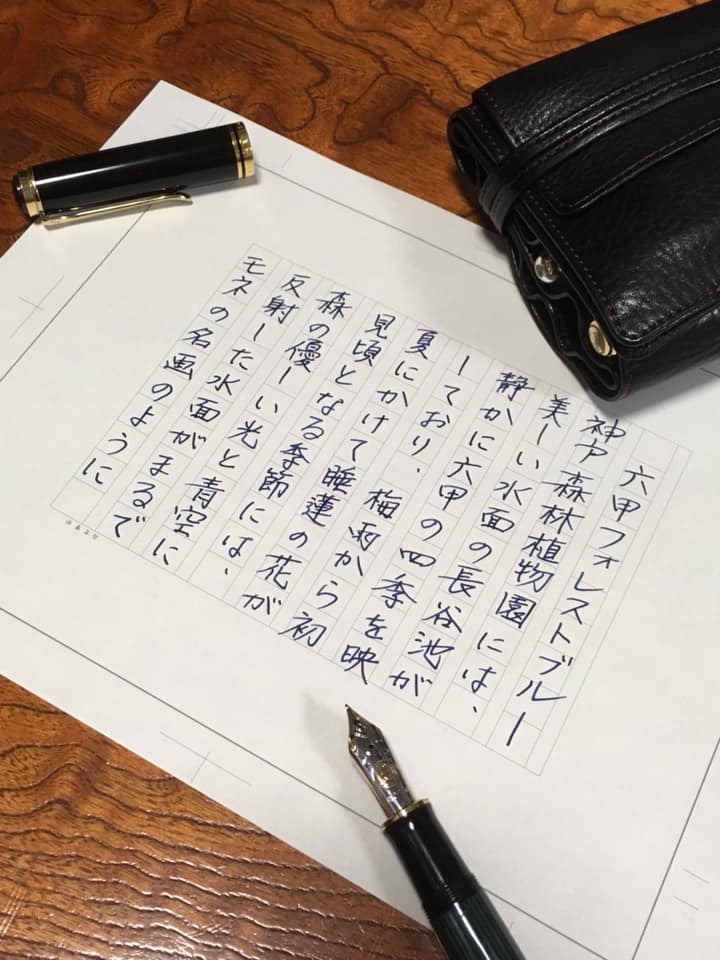 六甲フォレストブルー
神戸森林植物園には、
美しい水面の長谷池が
静かに六甲の四季を映
しており、梅雨から初
夏にかけて睡蓮の花が
見頃となる季節には、
森の優しい光と青空に
反射した水面がまるで
モネの名画のように